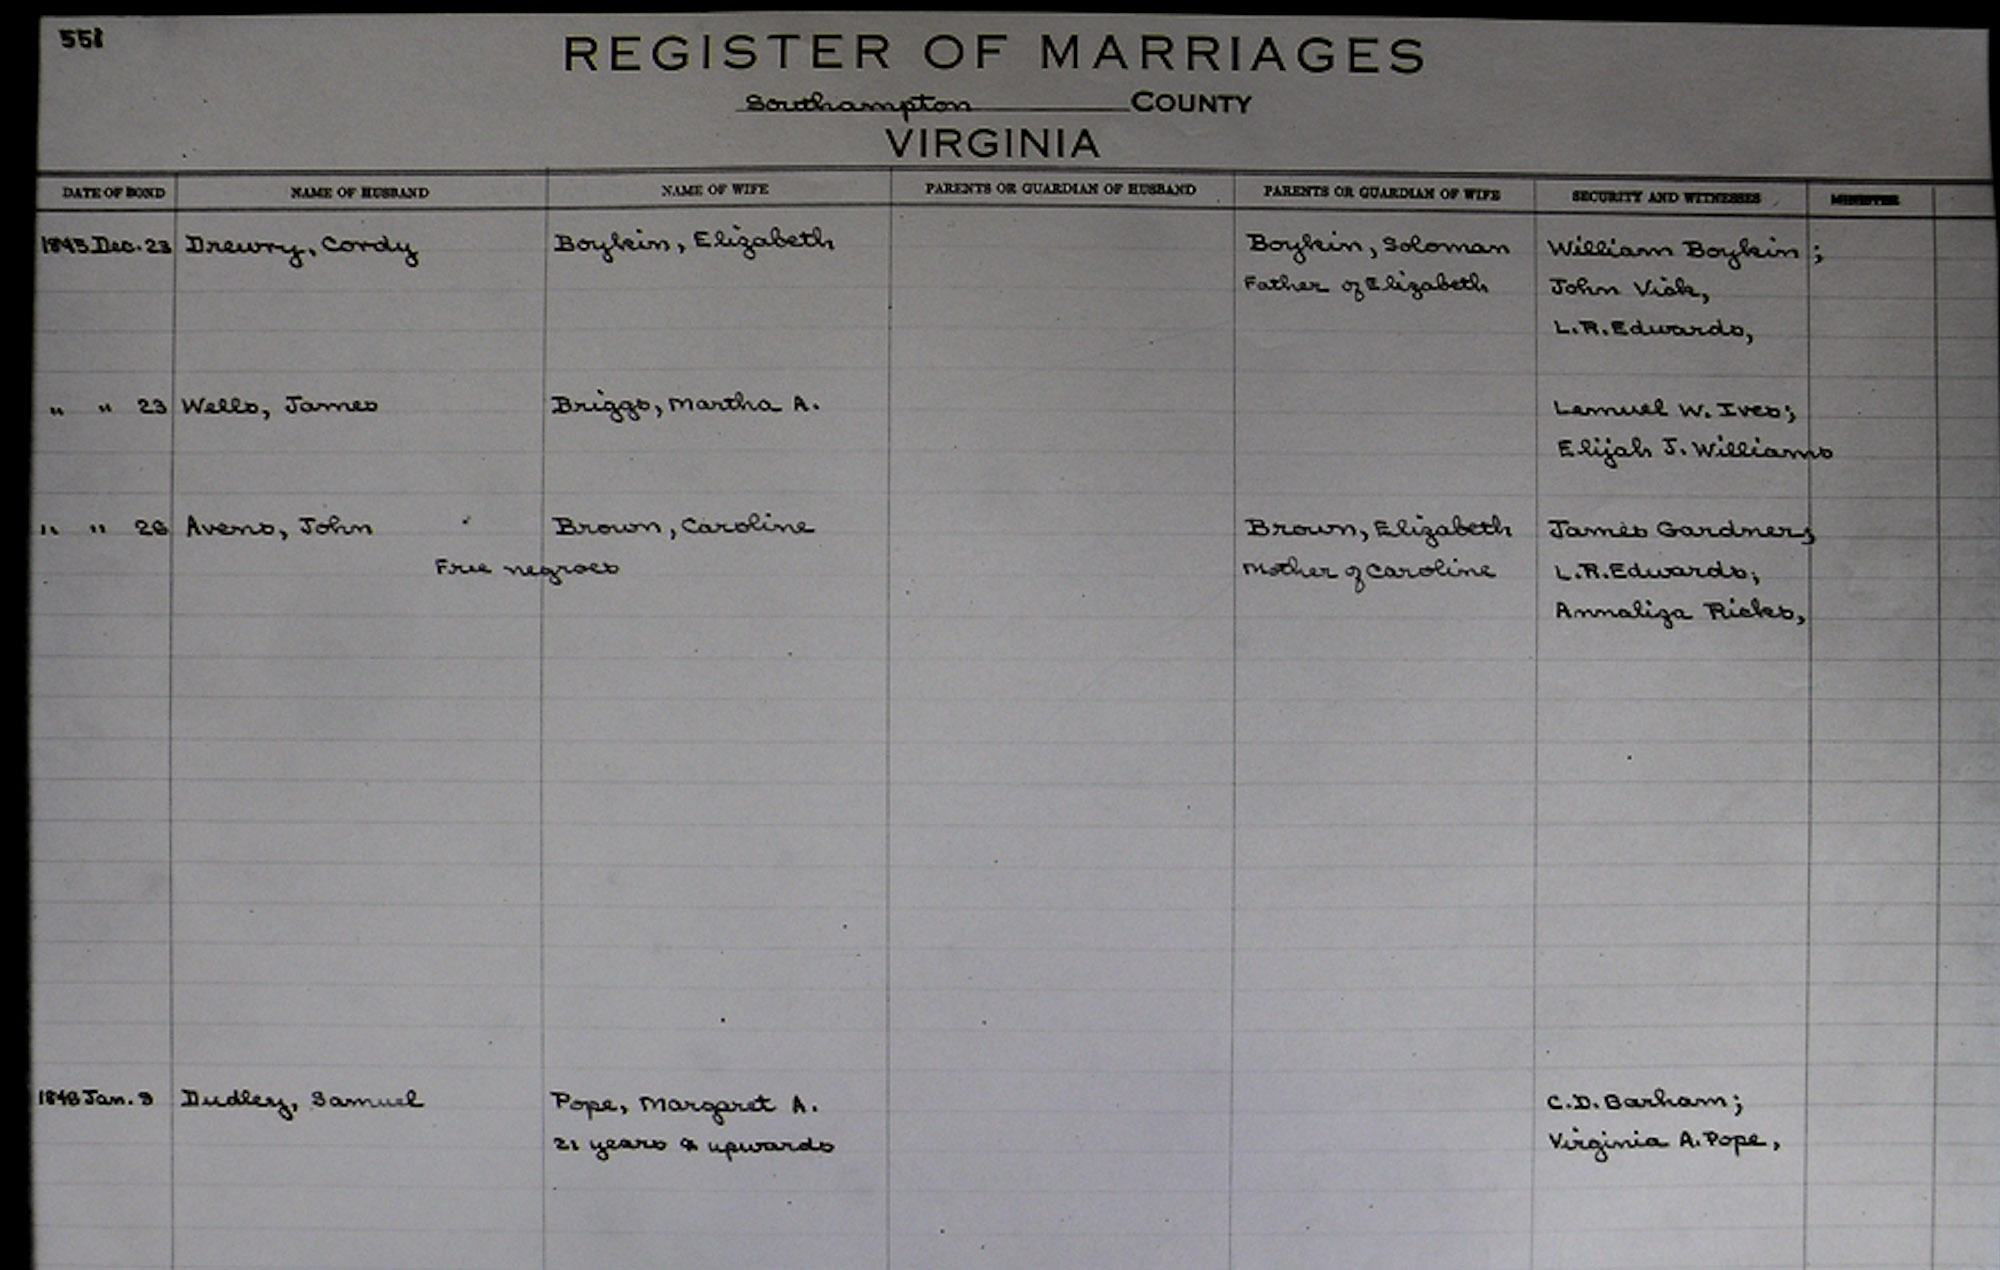 551
REGISTER OF MARRIAGES
Southampton COUNTY
VIRGINIA
DATE OF BOND NAME OF HUSBAND NAME OF WIFE PARENTS OR GUARDIAN OF HUSBAND PARENTS OR GUARDIAN OF WIFE SECURITY AND WITNESSES MINISTER
1845 Dec. 23 Drewry, Cordy Boykin, Elizabeth Boykin, Soloman William Boykin ;
Father of Elizabeth John Vick,
L.R. Edwards,
" " 23 Wells, James Briggs, Martha A. Lemuel W. Ives;
Elijah J. Williams
" " 26 Avens, John Brown, Caroline Brown, Elizabeth James Gardner;
Free negroes Mother of Caroline L.R. Edwards;
Annaliza Ricks,
1846 Jan. 9 Dudley, Samuel Pope, Margaret A. C.D. Barham;
21 years & upwards Virginia A. Pope,